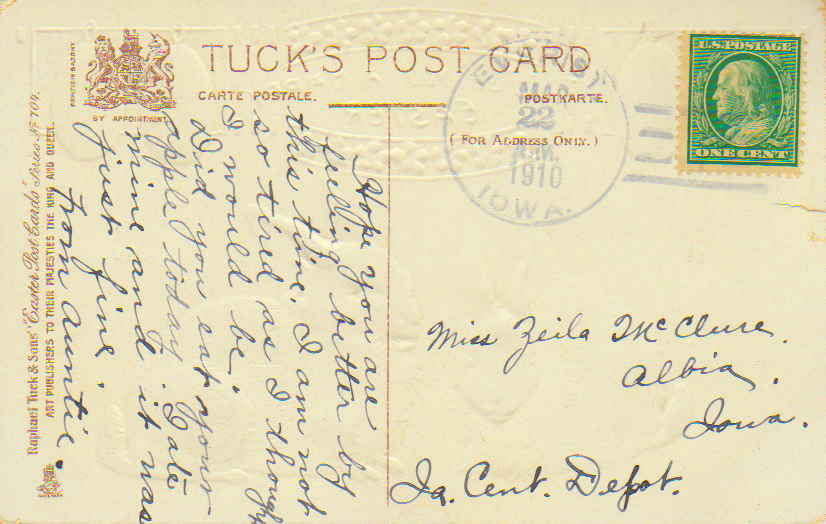 TUCK'S POST CARD
CARTE POSTALE.
POSTKARTE.
(FOR ADDRESS ONLY.)
BY APPOINTMENT
U.S. POSTAGE
ONE CENT
MAR
22
A.M.
1910
IOWA.
Hope you are
feeling better by
this time. I am not
so tired as I thought
I would be.
Did you eat your
apple today. I ate
mine and it was
just fine.
From Auntie.
Miss Zeila McClure.
Albia,
Iowa.
Ia. Cent. Depot.
Raphael Tuck & Sons' "Easter Post Cards" Series No 709.
ART PUBLISHERS TO THEIR MAJESTIES THE KING AND QUEEN.